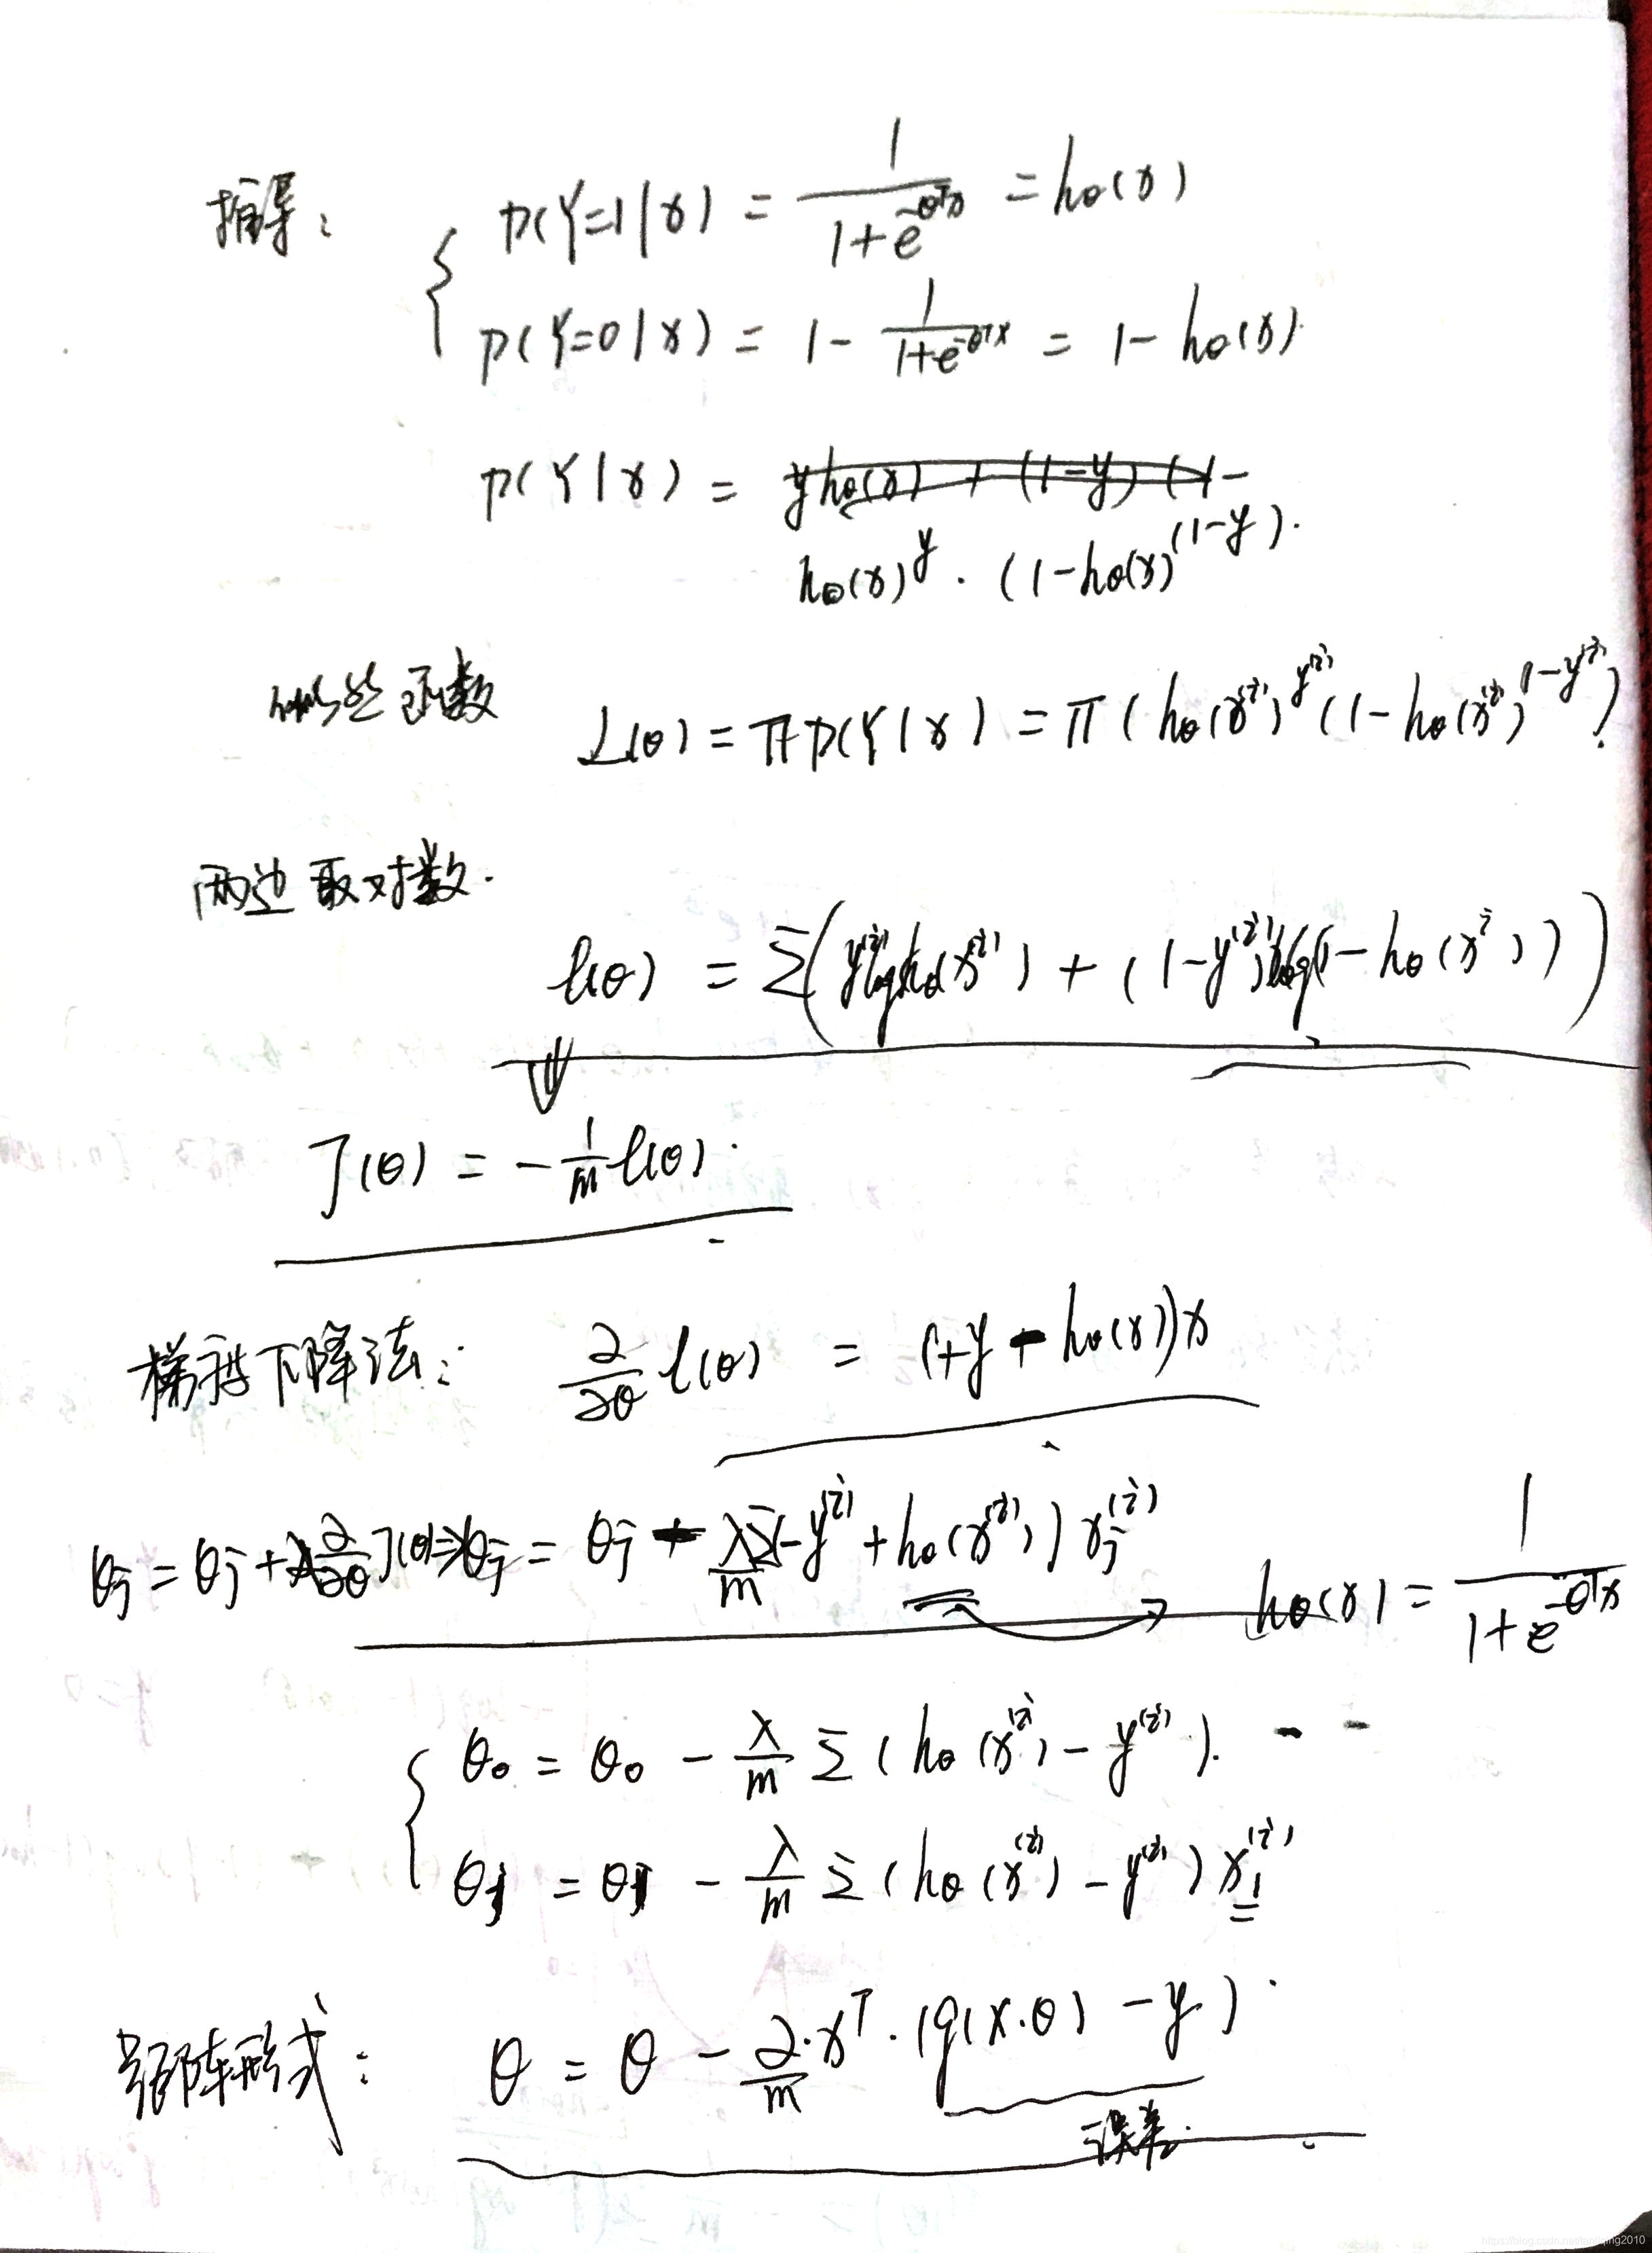 推导：
p(Y=1|x) = 1/(1+e^{-θᵀx}) = hθ(x)
p(Y=0|x) = 1 - 1/(1+e^{-θᵀx}) = 1 - hθ(x).
p(Y|x) = yhθ(x) + (1-y) (1-
hθ(x)^y · (1-hθ(x)^{(1-y)}.
似然函数
L(θ) = π p(Y|x) = π (hθ(x^{(i)})^{y^{(i)}} (1-hθ(x^{(i)})^{1-y^{(i)}})
两边取对数.
l(θ) = Σ(y^{(i)}log hθ(x^{(i)}) + (1-y^{(i)})log(1-hθ(x^i)))
J(θ) = -1/m l(θ).
梯度下降法：
∂/∂θ l(θ) = (+y - hθ(x))x
θj = θj + λ ∂/∂θ J(θ) ⇒ θj = θj - λ/m Σ(-y^{(i)} + hθ(x^{(i)})) xj^{(i)}
hθ(x) = 1/(1+e^{-θᵀx})
θ₀ = θ₀ - λ/m Σ(hθ(x^{(i)}) - y^{(i)}).
θj = θj - λ/m Σ(hθ(x^{(i)}) - y^{(i)}) xj^{(i)}
矩阵形式：
θ = θ - ∂/m · xᵀ · (g(x·θ) - y)
误差.